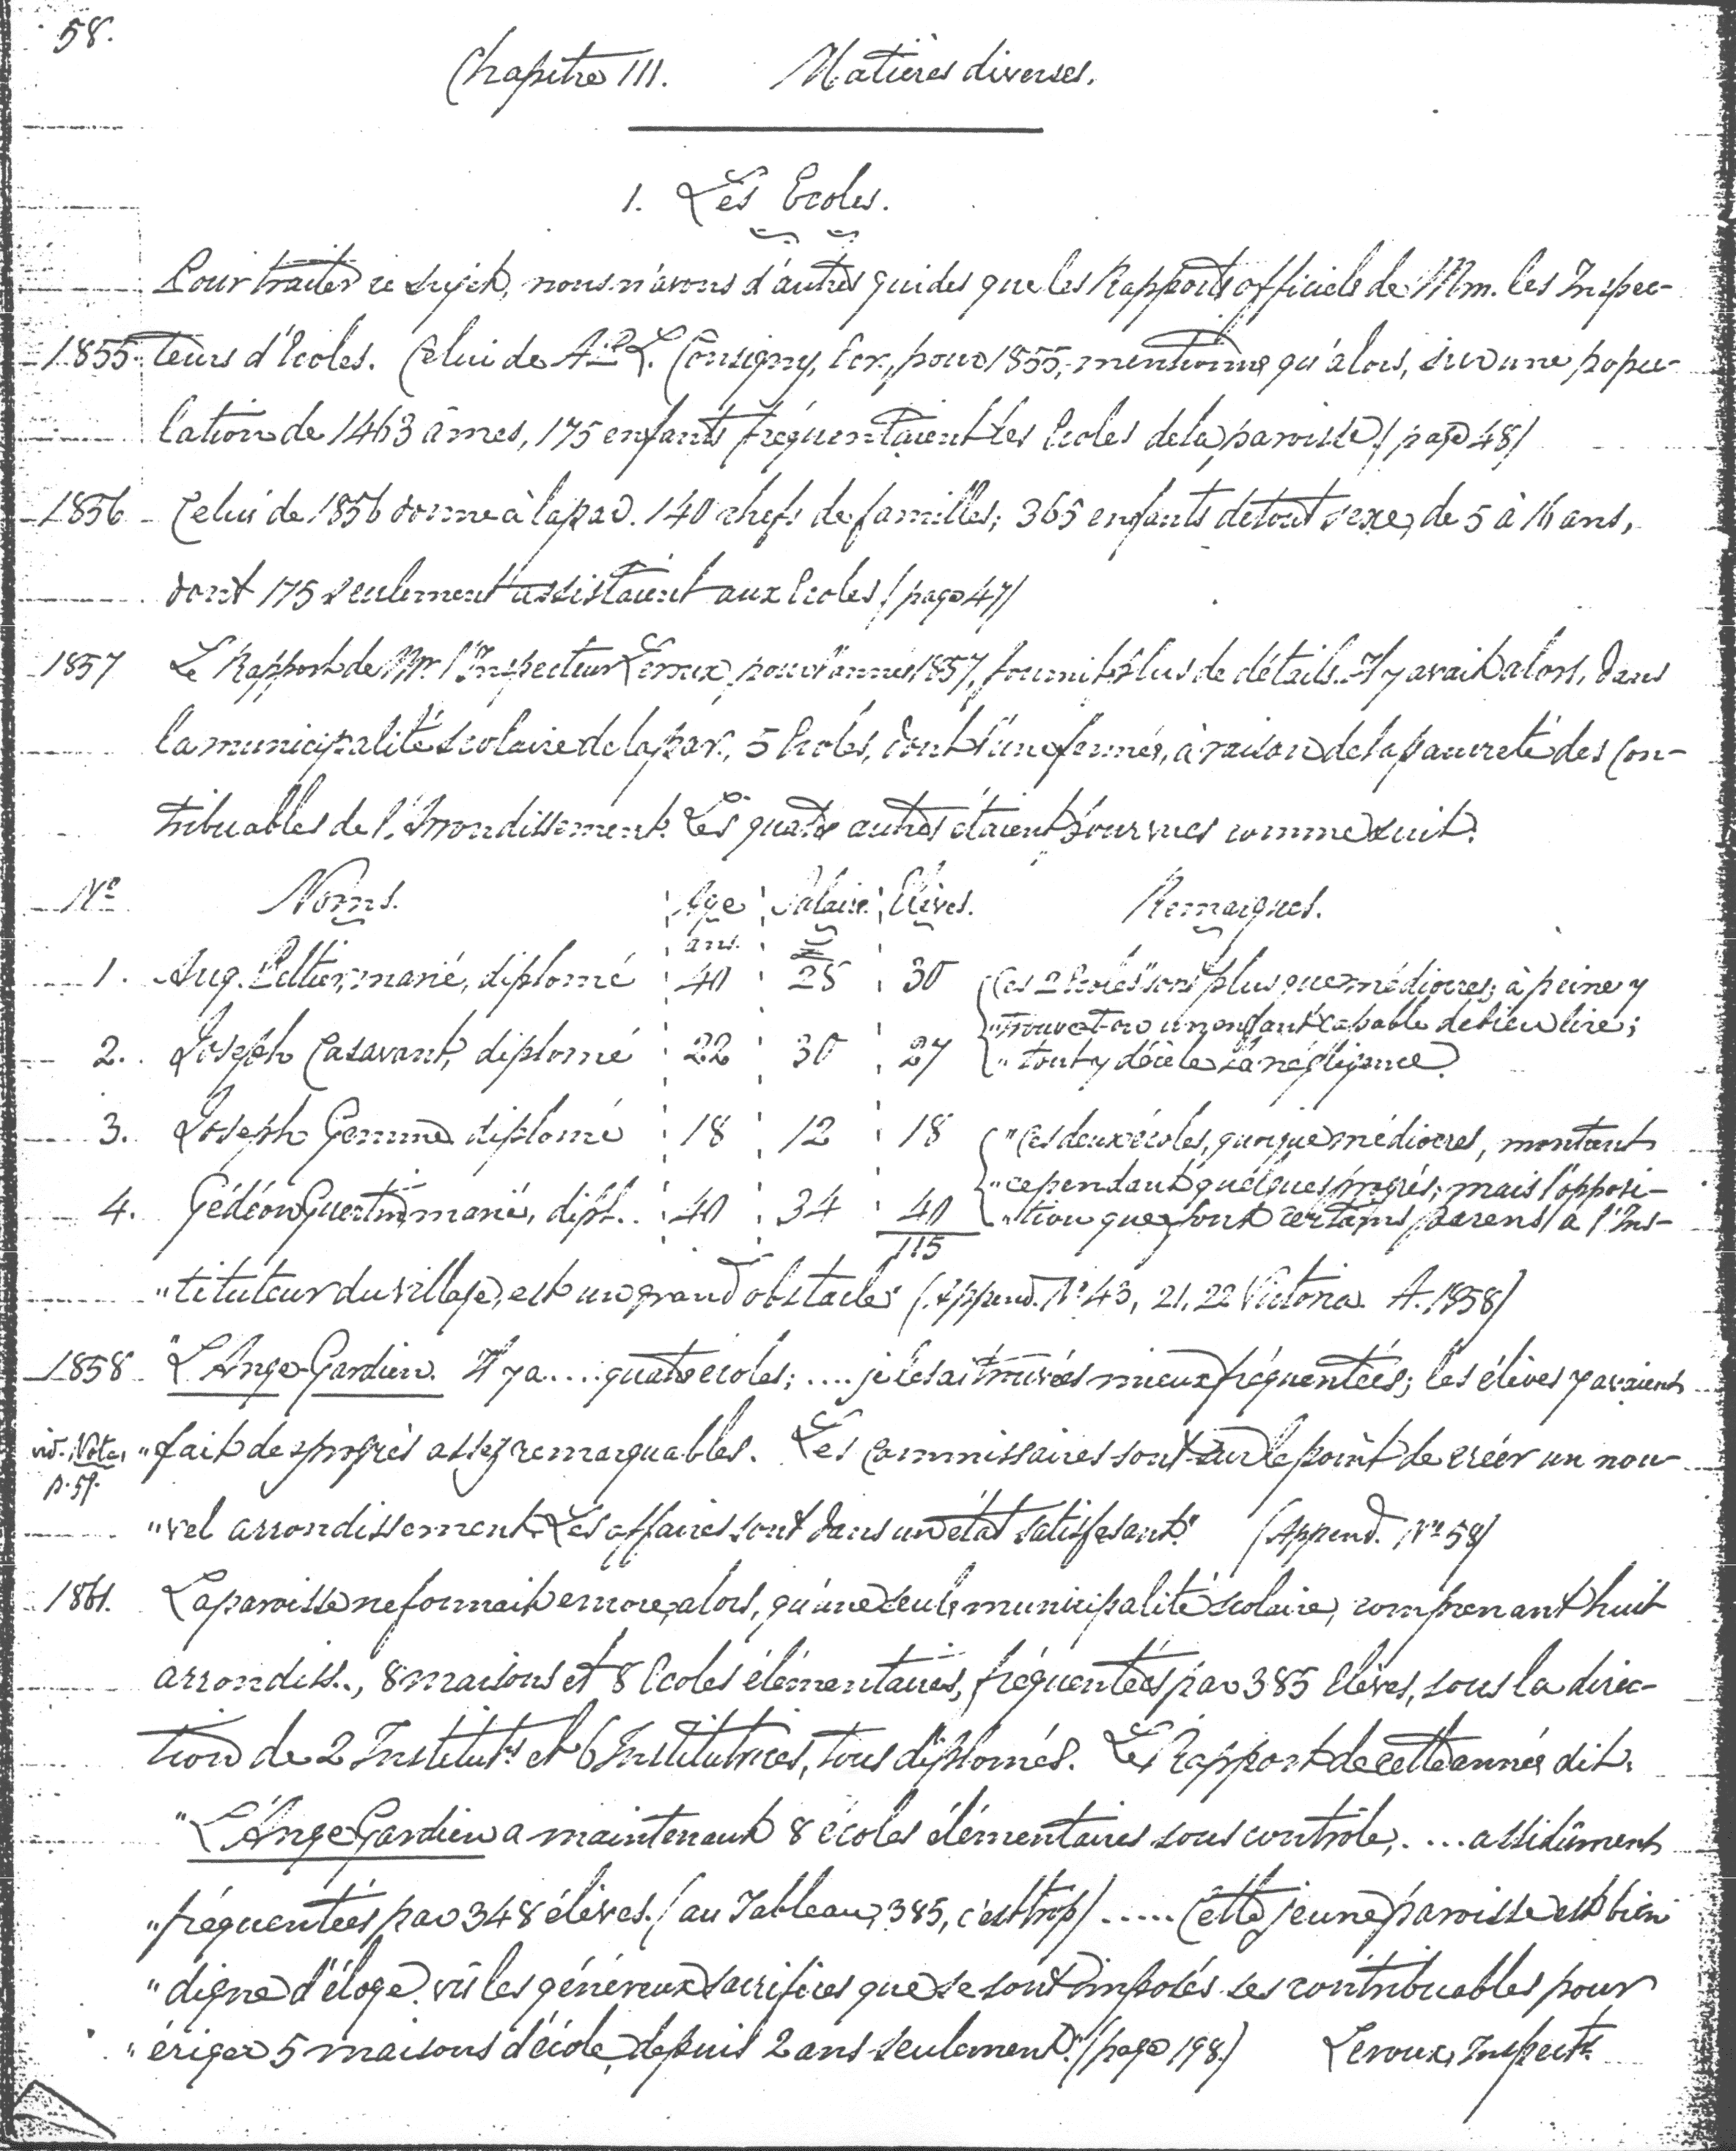 58.
Chapitre III. Matières diverses.
1. Les Ecoles.
Pour traiter ce sujet, nous n'avons d'autres guides que les Rapports officiels de Mm. les Inspec-
1855. teurs d'Ecoles. Celui de A. L. Consigny, Ecr., pour 1855, mentionne qu'alors, sur une popu-
lation de 1463 âmes, 175 enfants fréquentaient les Ecoles de la paroisse (page 48)
1856 Celui de 1856 donne à la par. 140 chefs de familles; 365 enfants de tout sexe, de 5 à 16 ans,
dont 175 seulement assistaient aux Ecoles (page 47)
1857 Le Rapport de Mr. l'Inspecteur Leroux, pour l'année 1857, fournit plus de détails. Il y avait alors, dans
la municipalité scolaire de la par., 5 Ecoles, dont l'une fermée, à raison de la pauvreté des Con-
tribuables de l'Arrondissement. Les quatre autres étaient pourvues comme suit:
No Noms. Age Salaire. Elèves. Remarques.
ans. £
1. Aug. Peltier, marié, diplomé 40 25 30 Ces 2 Ecoles sont plus que médiocres; à peine y
" trouve-t-on un enfant capable de bien lire;
2. Joseph Casavant, diplomé 22 30 27 " tout y décèle la négligence.
3. Joseph Gemme diplomé 18 12 18 "Ces deux écoles, quoique médiocres, montrent
" cependant quelques progrès; mais l'opposi-
4. Gédéon Guertin, marié, dipl. 40 34 40 " tion que font certains parens à l'Ins-
115
" tituteur du village, est un grand obstacle" (Append. No 43, 21. 22 Victoria. A. 1858)
1858 "L'Ange-Gardien. Il y a .... quatre écoles; .... je les ai trouvées mieux fréquentées; les élèves y avaient
vid. Note, p. 59. " fait des progrès assez remarquables. Les Commissaires sont sur le point de créer un nou-
" vel arrondissement. Les affaires sont dans un état satisfesant." (Append. No 58)
1861. La paroisse ne formait encore, alors, qu'une seule municipalité scolaire, comprenant huit
arrondiss., 8 maisons et 8 Ecoles élémentaires, fréquentées par 385 Elèves, sous la direc-
tion de 2 Instituts et 6 Institutrices, tous diplomés. Le Rapport de cette année dit:
"L'Ange Gardien a maintenant 8 écoles élémentaires sous contrôle, .... assidûment
" fréquentées par 348 élèves. (au Tableau, 385, c'est trop) ..... Cette jeune paroisse est bien
" digne d'éloge, vû les généreux sacrifices que se sont imposés ses contribuables pour
" ériger 5 maisons d'école, depuis 2 ans seulement." (page 198.) Leroux, Inspectr.